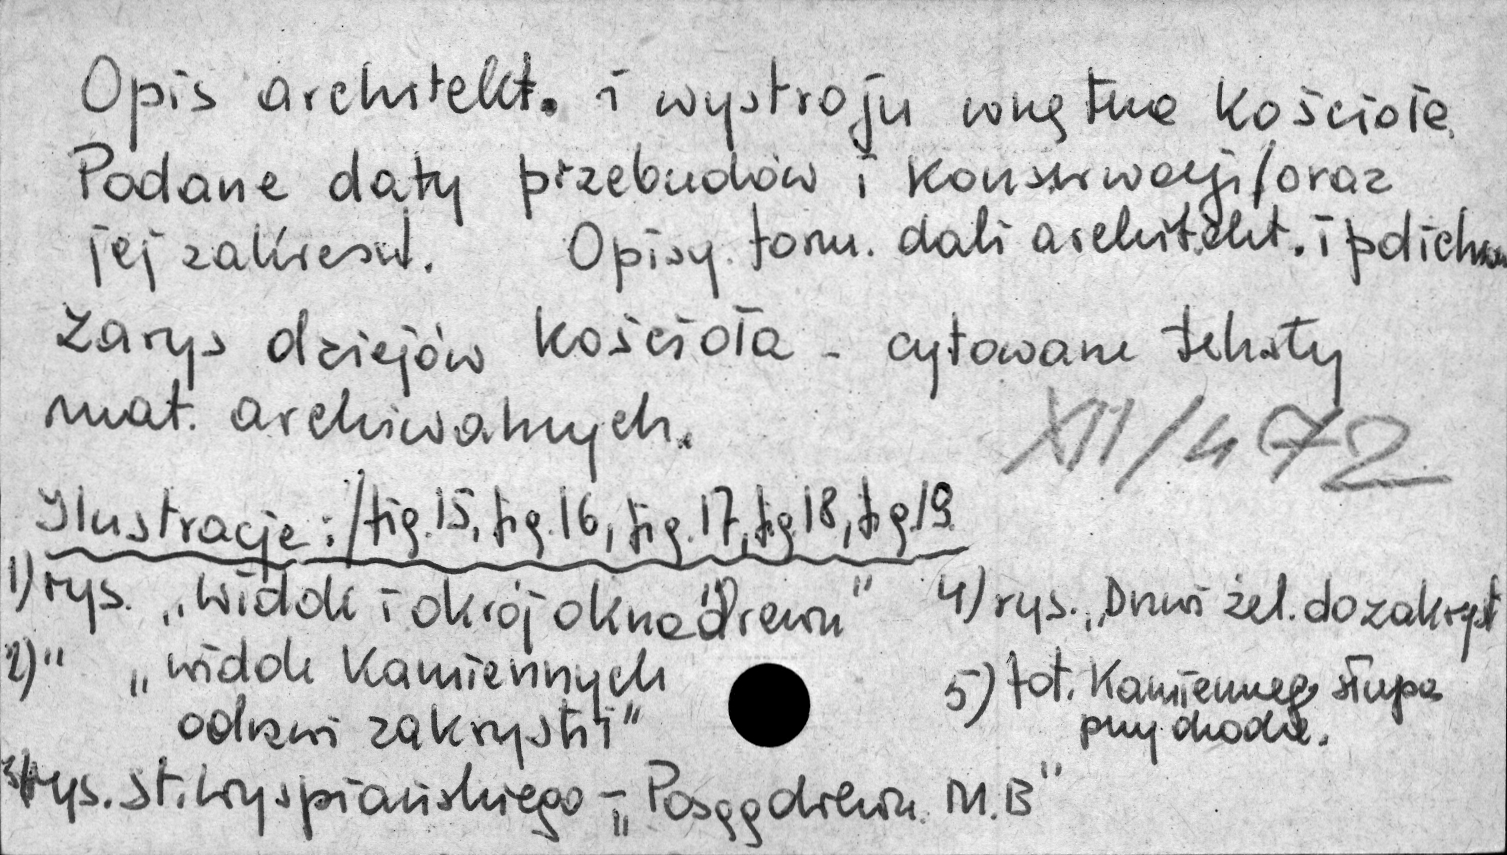 Opis architekt. i wystroju wnętrza kościoła.
Podane daty przebudów i konserwacji/oraz
jej zakresu/. Opisy form. dali architekt. i polichrom
Zarys dziejów kościoła - cytowane teksty
mat. archiwalnych.
XII/472
Ilustracje: /fig.15, fig.16, fig.17, fig.18, fig.19
1) rys. „widok i okrój okna drewn"
2) " „widok kamiennych
odrzwi zakrystii"
3) rys. St. Wyspiańskiego - „Posąg drewn. M.B"
4) rys. „Drzwi żel. do zakryst
5) fot. Kamiennego słupa
przy drodze.